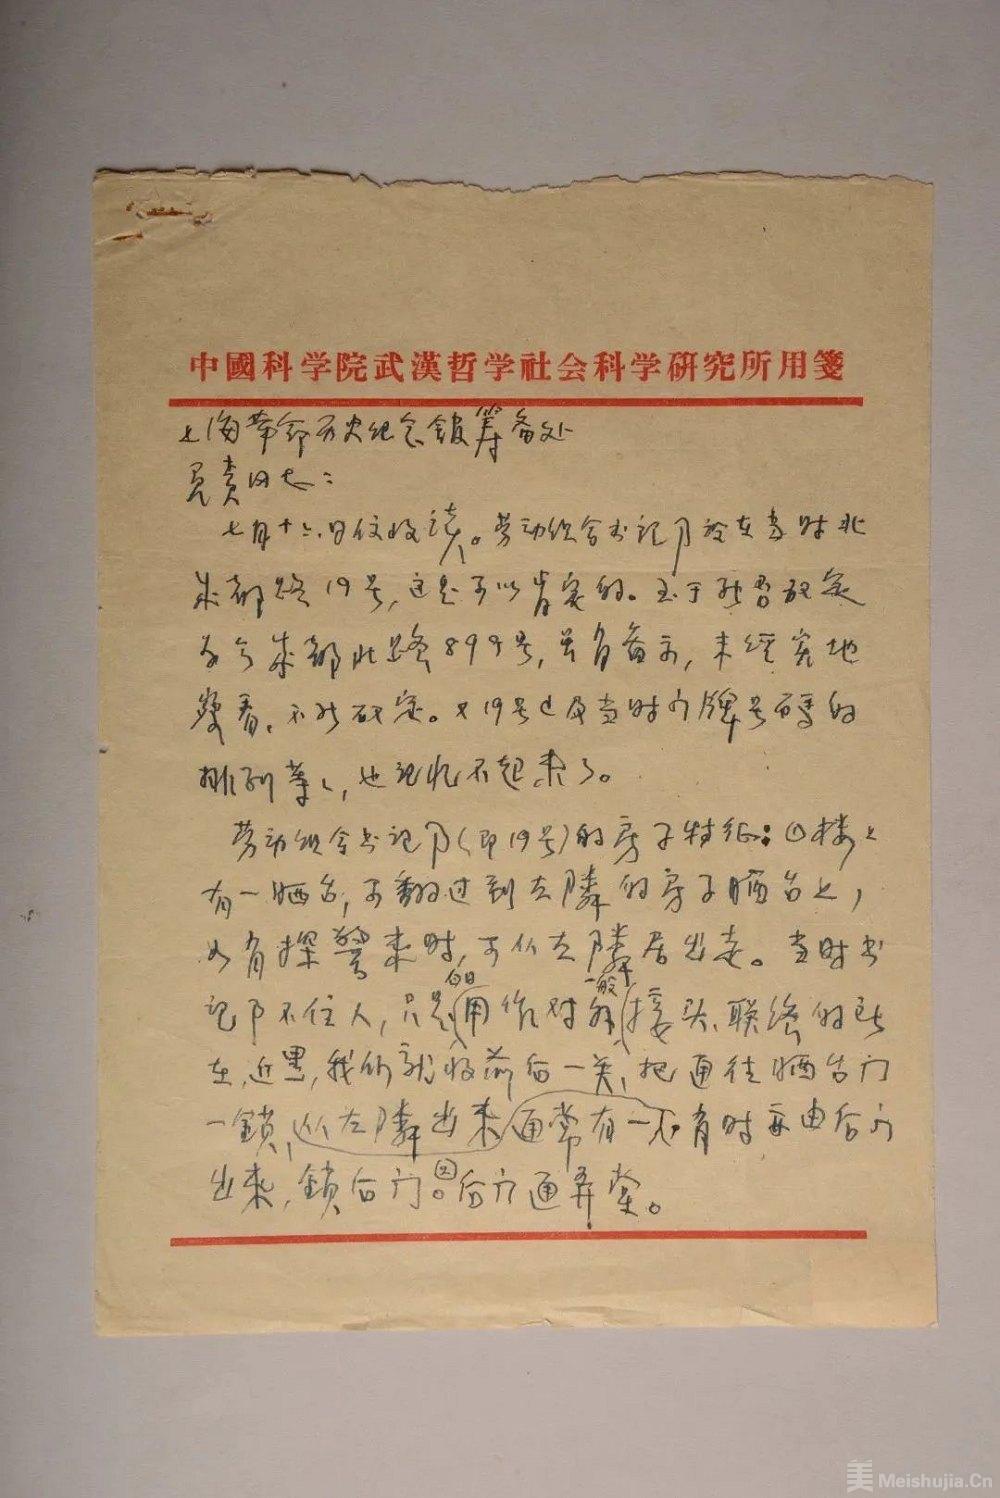 中國科学院武漢哲学社会科学研究所用箋
上海革命历史纪念馆筹备处
负责同志：
七月十六日信收读。劳动组合书记部设在当时北
成都路19号，这是可以肯定的。至于能否确定
为今成都北路899号，虽有备示，未经实地
察看，不能确定。又19号已及当时门牌号码的
排列等々，也记忆不起来了。
劳动组合书记部（即19号）的房子特征：①楼上
有一晒台，可翻过到左隣的房子晒台上，
如有探警来时，可从左隣居出走。当时书
记部不住人，只是白日用作对外一般接头、联络的所
在，近黑，我们就将前后一关，把通往晒台门
一鎖，从左隣出来通常有一 有时亦由后门
出来，鎖后门。因后门通弄堂。
美 Meishujia.Cn